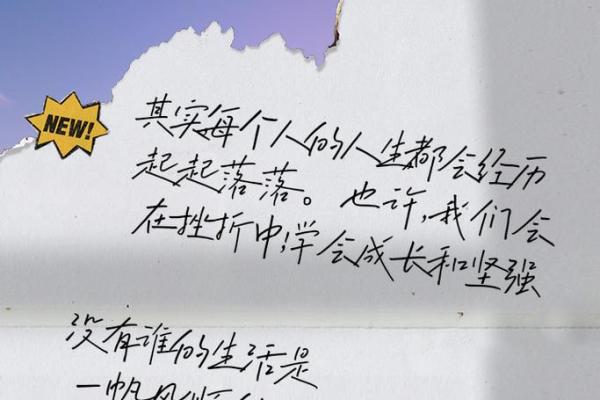 NEW!
其实每个人的人生都会经历
起起落落。也许,我们会
在挫折中,学会成长和坚强
没有谁的生活是
一帆风顺的